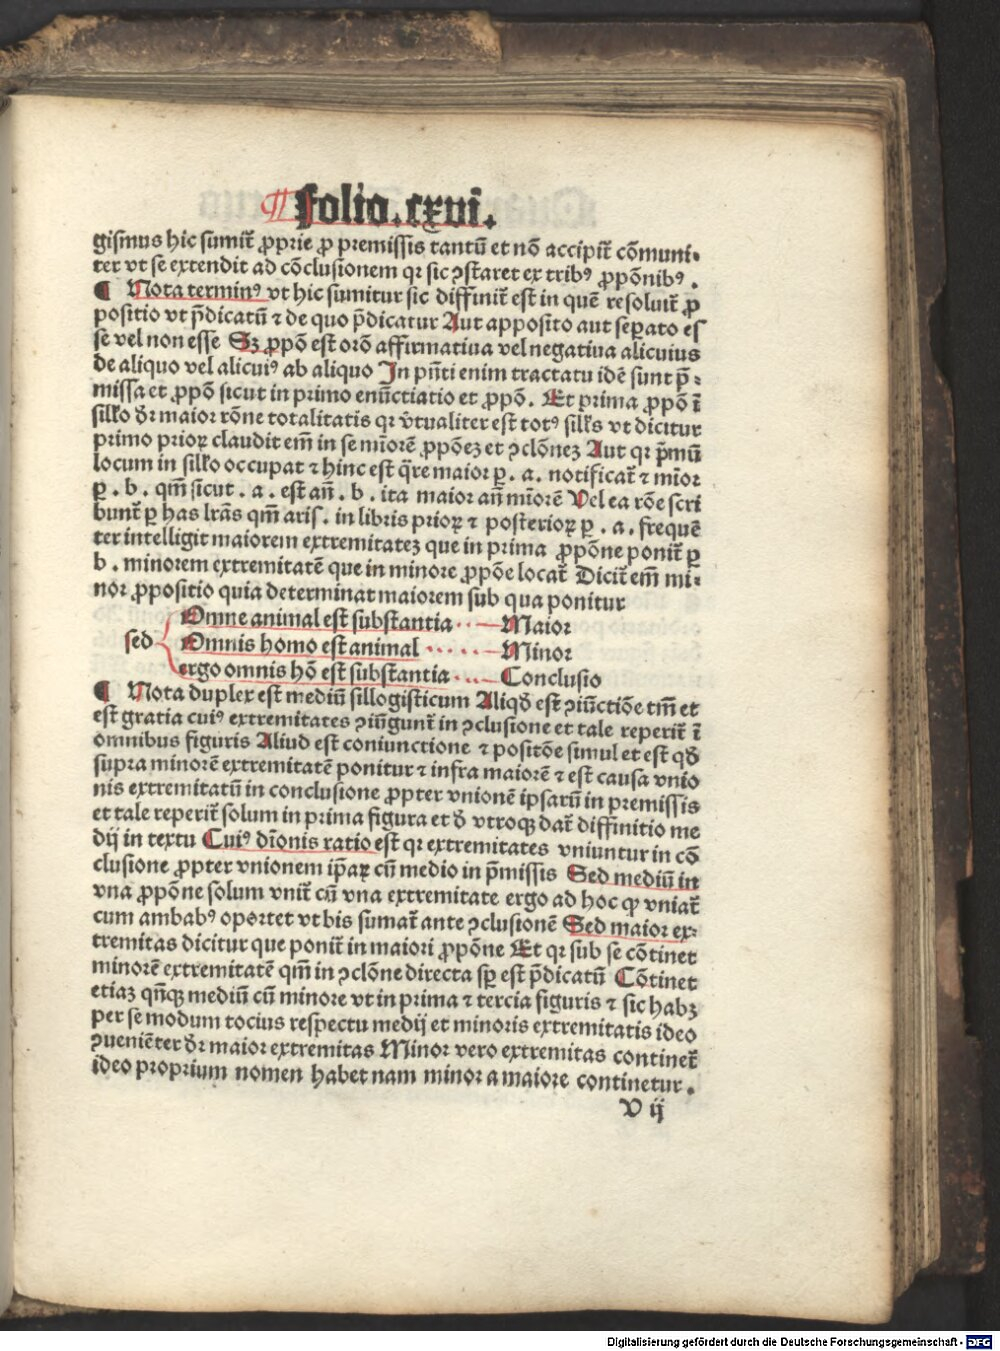 ¶ folio.cxvi.
gismus hic sumit̃ ꝓprie ꝓ premissis tantũ et nõ accipit̃ cõmuni⸗
ter vt se extendit ad cõclusionem qꝛ sic ꝯstaret ex tribꝰ ꝓpõnibꝰ.
¶ Nota terminꝰ vt hic sumitur sic diffinit̃ est in quẽ resoluit̃ ꝓ
positio vt p̃dicatũ ⁊ de quo p̃dicatur Aut apposito aut seꝑato es
se vel non esse Sꝫ ꝓpõ est orõ affirmatiua vel negatiua alicuius
de aliquo vel alicuiꝰ ab aliquo In pñti enim tractatu idẽ sunt p̃⸗
missa et ꝓpõ sicut in primo enũctiatio et ꝓpõ. Et prima ꝓpõ ĩ
sillo dr̃ maior rõne totalitatis qꝛ v̾tualiter est totꝰ sills vt dicitur
primo prioꝝ claudit em̃ in se mĩorẽ ꝓpõeꝫ et ꝯclõneꝫ Aut qꝛ pm̃ũ
locum in sillo occupat ⁊ hinc est q̃re maior ꝑ. a. notificat̃ ⁊ mĩor
ꝑ. b. qm̃ sicut. a. est añ. b. ita maior añ mĩorẽ Vel ea rõe scri
bunt̃ ꝑ has lrãs qm̃ aris. in libris prioꝝ ⁊ posterioꝝ ꝑ. a. frequẽ
ter intelligit maiorem extremitateꝫ que in prima ꝓpõne ponit̃ ꝑ
b. minorem extremitatẽ que in minore ꝓpõe locat̃ Dicit̃ em̃ mi⸗
nor ꝓpositio quia determinat maiorem sub qua ponitur
Omne animal est substantia Maior
sed Omnis homo est animal Minor
ergo omnis hõ est substantia Conclusio
¶ Nota duplex est mediũ sillogisticum Aliqđ est ꝯiũctiõe tm̃ et
est gratia cuiꝰ extremitates ꝯiũgunt̃ in ꝯclusione et tale reperit̃ ĩ
omnibus figuris Aliud est coniunctione ⁊ positõe simul et est qđ
supra minorẽ extremitatẽ ponitur ⁊ infra maiorẽ ⁊ est causa vnio
nis extremitatũ in conclusione ꝓpter vnionẽ ipsarũ in premissis
et tale reperit̃ solum in prima figura et đ vtroqꝫ dat̃ diffinitio me
dij in textu Cuiꝰ dĩonis ratio est qꝛ extremitates vniuntur in cõ
clusione ꝓpter vnionem ip̃aꝝ cũ medio in p̃missis Sed mediũ in
vna ꝓpõne solum vnit̃ cũ vna extremitate ergo ad hoc ꝙ vniat̃
cum ambabꝰ oportet vt bis sumat̃ ante ꝯclusionẽ Sed maior ex⸗
tremitas dicitur que ponit̃ in maiori ꝓpõne Et qꝛ sub se cõtinet
minorẽ extremitatẽ qm̃ in ꝯclõne directa sꝑ est p̃dicatũ Cõtinet
etiaꝫ qñqꝫ mediũ cũ minore vt in prima ⁊ tercia figuris ⁊ sic habꝫ
per se modum tocius respectu medij et minoris extremitatis ideo
ꝯueniẽter dr̃ maior extremitas Minor vero extremitas continet̃
ideo proprium nomen habet nam minor a maiore continetur.
V ij
Digitalisierung gefördert durch die Deutsche Forschungsgemeinschaft - DFG